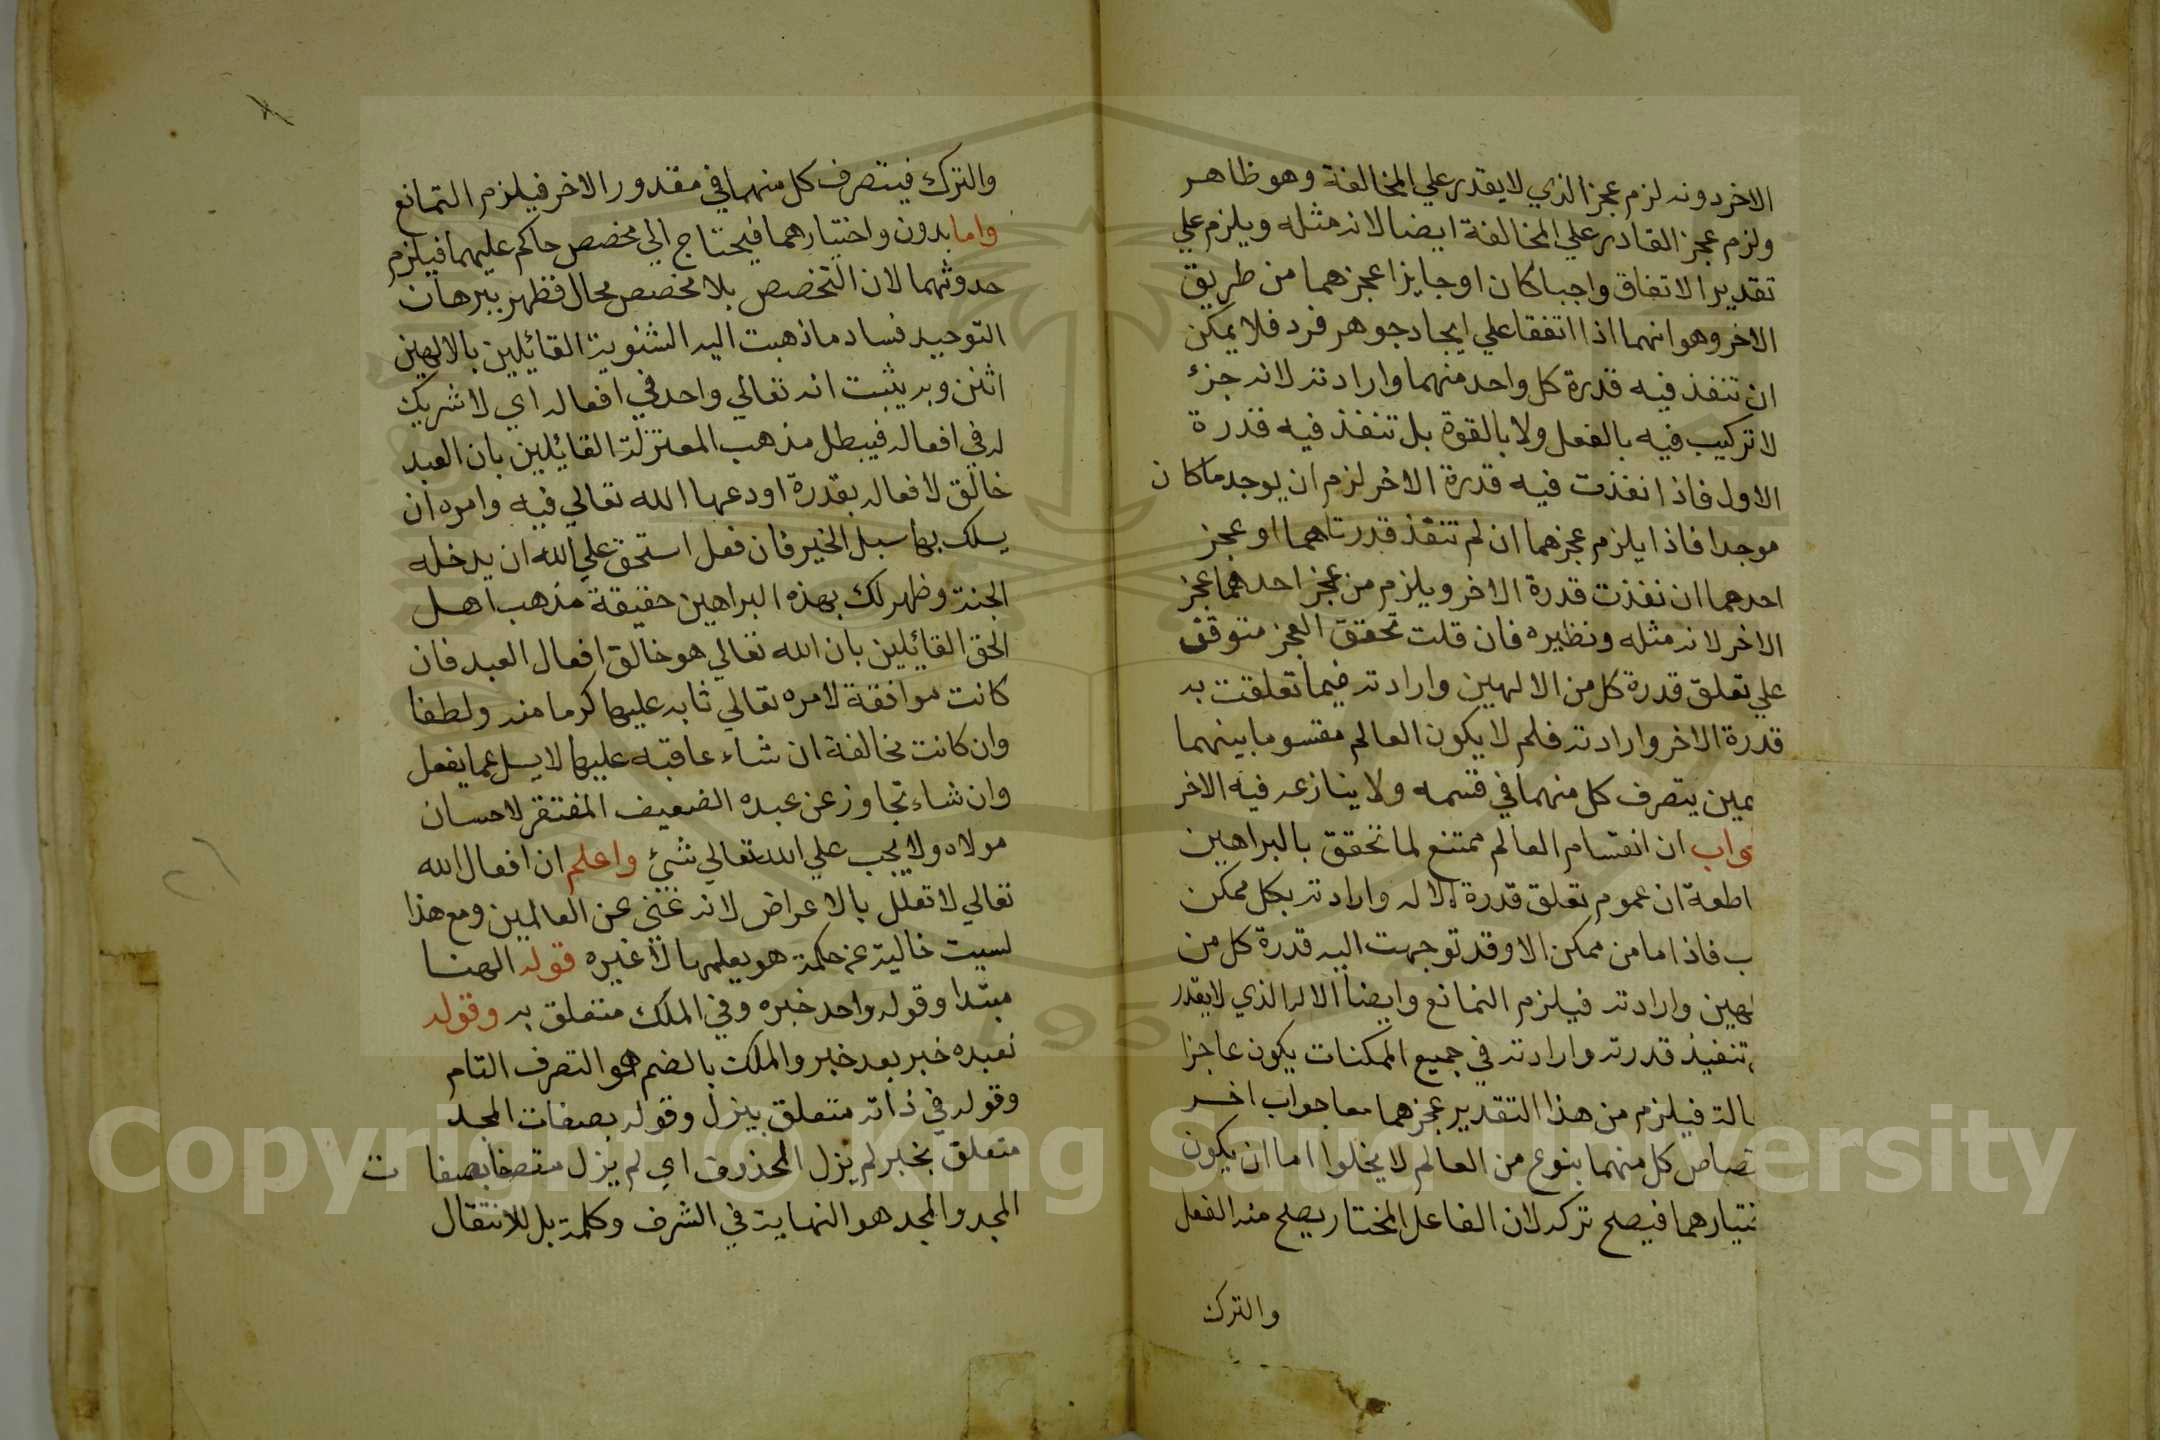 الاخر دونه لزم عجز الذي لا يقدر علي المخالفة وهو ظاهر
ولزم عجز القادر علي المخالفة ايضا لانه مثله ويلزم علي
تقدير الاتفاق واجبا كان او جايزا عجزهما من طريق
الاخر وهو انهما اذا اتفقا علي ايجاد جوهر فرد فلا يمكن
ان تنفذ فيه قدرة كل واحد منهما وارادته لانه جزء
لا تركيب فيه بالفعل ولا بالقوة بل تنفذ فيه قدرة
الاول فاذا نفذت فيه قدرة الاخر لزم ان يوجد ما كان
موجدا فاذا يلزم عجزهما ان لم تنفذ قدرتاهما او عجز
احدهما ان نفذت قدرة الاخر ويلزم من عجز احدهما عجز
الاخر لانه مثله ونظيره فان قلت تحقق العجز متوقف
علي تعلق قدرة كل من الالهين وارادته فيما تعلقت به
قدرة الاخر وارادته فلم لا يكون العالم مقسوما بينهما
يمين يتصرف كل منهما في قسمه ولا ينازعه فيه الاخر
واب ان انقسام العالم ممتنع لما تحقق بالبراهين
اطعة ان عموم تعلق قدرة الاله وارادته بكل ممكن
ب فاذا ما من ممكن الا وقد توجهت اليه قدرة كل من
لهين وارادته فيلزم التمانع وايضا الاله الذي لا يقدر
تنفيذ قدرته وارادته في جميع الممكنات يكون عاجزا
الة فيلزم من هذا التقدير عجزهما معا جواب اخر
تصاص كل منهما بنوع من العالم لا يخلوا اما ان يكون
ختيارهما فيصلح تركه لان الفاعل المختار يصلح منه الفعل
والترك
والترك فيتصرف كل منهما في مقدور الاخر فيلزم التمانع
واما بدون واختيارهما فيحتاج الي مخصص حاكم عليهما فيلزم
حدوثهما لان التخصص بلا مخصص محال فظهر ببرهان
التوحيد فساد ما ذهبت اليه الثنوية القائيلين بالالهين
اثنن وبه يثبت انه تعالي واحد في افعاله اي لا شريك
له في افعاله فيبطل مذهب المعتزلة القائيلين بان العبد
خالق لافعاله بقدرة اودعها الله تعالي فيه وامره ان
يسلك بها سبل الخير فان فعل استحق علي الله ان يدخله
الجنة وظهر لك بهذه البراهين حقيقة مذهب اهل
الحق القائيلين بان الله تعالي هو خالق افعال العبد فان
كانت موافقة لامره تعالي ثابه عليها كرما منه ولطفا
وان كانت مخالفة ان شاء عاقبه عليها لا يسل عما يفعل
وان شاء تجاوز عن عبده الضعيف المفتقر لاحسان
مولاه ولا يجب علي الله تعالي شئ واعلم ان افعال الله
تعالي لا تعلل بالاعراض لانه غني عن العالمين ومع هذا
لسيت خالية عن حكمة هو يعلمها لا غيره قوله الهنا
مبتدا وقوله واحد خبره وفي الملك متعلق به وقوله
نعبده خبر بعد خبر والملك بالضم هو التصرف التام
وقوله في ذاته متعلق بيزل وقوله بصفات المجد
متعلق بخبر لم يزل المحذوف اي لم يزل متصفا بصفات
المجد والمجد هو النهاية في الشرف وكلمة بل للانتقال
Copyright © King Saud University